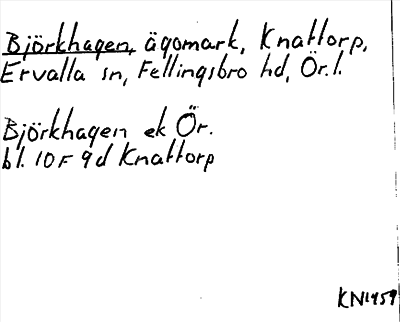 Björkhagen, ägomark, Knattorp,
Ervalla sn, Fellingsbro hd, Ör.l.
Björkhagen ek Ör.
bl. 10F 9d Knattorp
KN1959